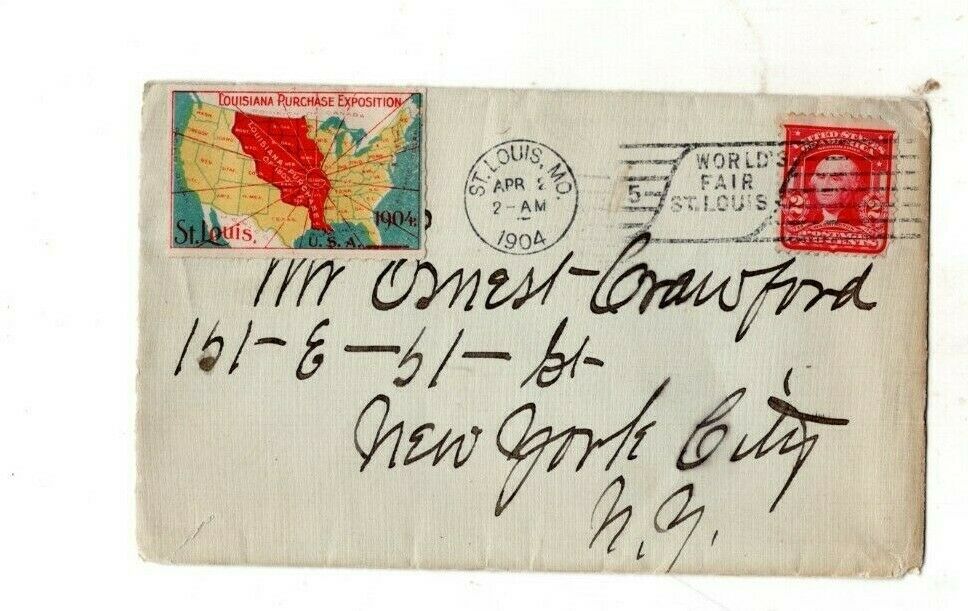 LOUISIANA PURCHASE EXPOSITION
CANADA
LOUISIANA PURCHASE
St. Louis.
1904.
U.S.A.
ST. LOUIS, MO.
APR 2
2-AM
1904
5
WORLD'S
FAIR
ST. LOUIS.
2 2
Mr Ernest Crawford
151-E-51-St
New York City
N.Y.